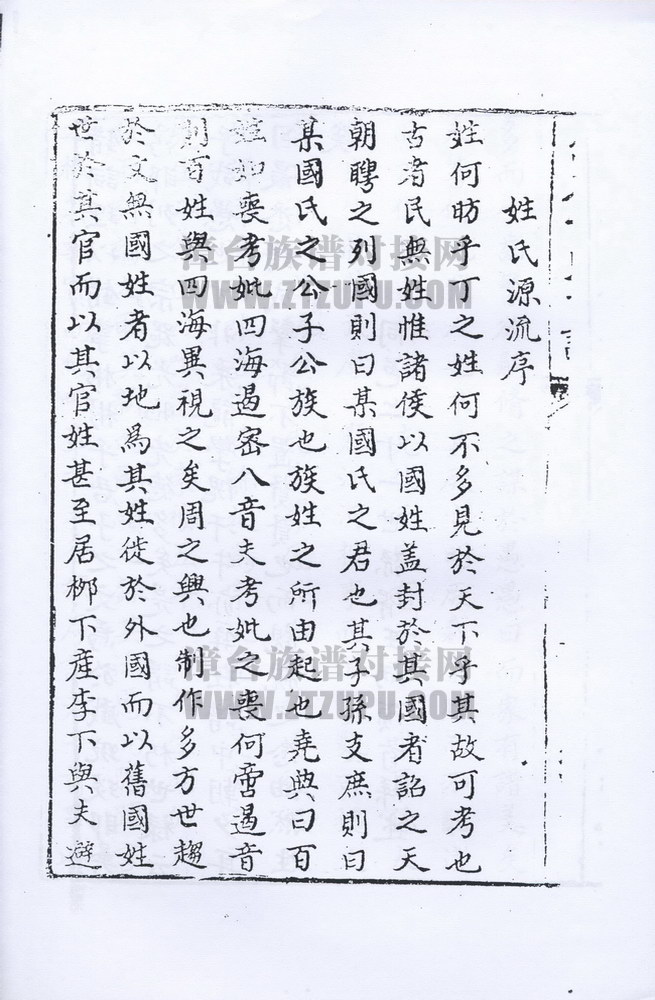 姓氏源流序
姓何昉乎丁之姓何不多見於天下乎其故可考也
古者民無姓惟諸侯以國姓盖封於其國者詔之天
朝聘之列國則曰某國氏之君也其子孫支庶則曰
某國氏之公子公族也族姓之所由起也堯典曰百
姓如喪考妣四海遏密八音夫考妣之喪何啻遏音
則百姓與四海異視之矣周之興也制作多方世趨
於文無國姓者以地為其姓徙於外國而以舊國姓
世於其官而以其官姓甚至居桞下産李下與夫避
漳台族谱对接网
WWW.ZTZUPU.COM
漳台族谱对接网
WWW.ZTZUPU.COM